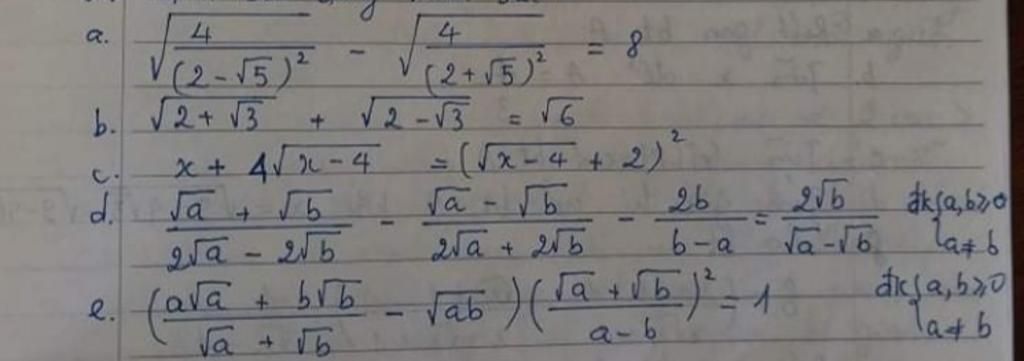 a. √(4/(2-√5)²) - √(4/(2+√5)²) = 8
b. √(2+√3) + √(2-√3) = √6
c. x + 4√(x-4) = (√(x-4) + 2)²
d. (√a + √b)/(2√a - 2√b) - (√a - √b)/(2√a + 2√b) - 2b/(b-a) = 2√b/(√a-√b) đk{a,b≥0 a≠b
e. ((a√a + b√b)/(√a + √b) - √ab)((√a + √b)/(a-b))² = 1 đk{a,b≥0 a≠b